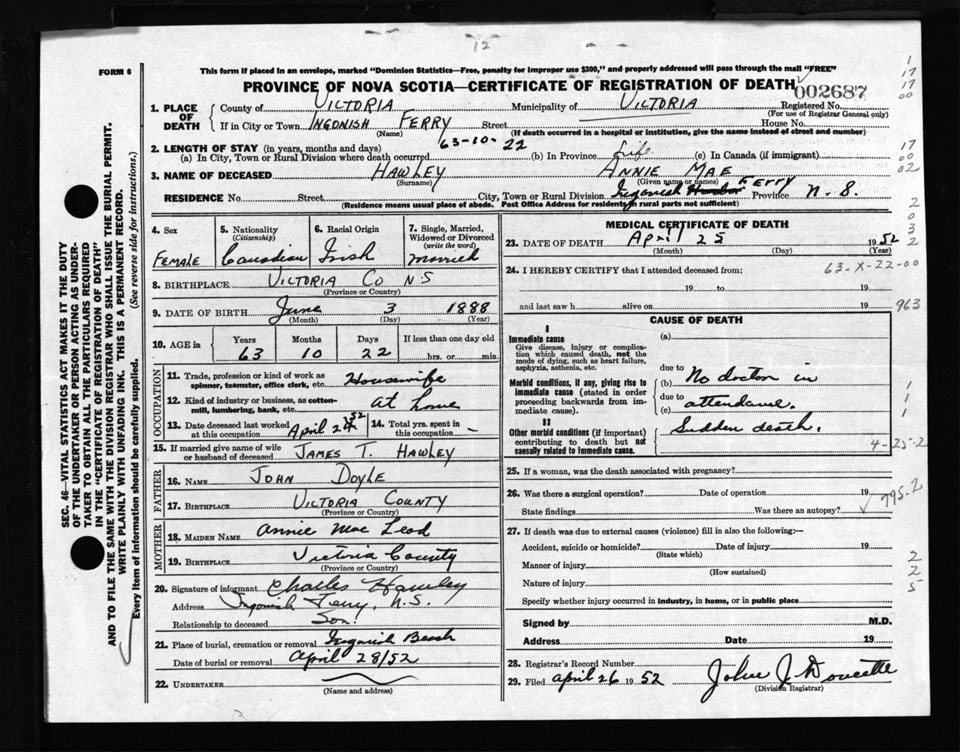 12
FORM 6
This form if placed in an envelope, marked "Dominion Statistics—Free, penalty for improper use $300," and properly addressed will pass through the mail "FREE"
PROVINCE OF NOVA SCOTIA—CERTIFICATE OF REGISTRATION OF DEATH
002687
1. PLACE OF DEATH
County of VICTORIA Municipality of VICTORIA Registered No.
(For use of Registrar General only)
If in City or Town INGONISH FERRY Street House No.
(Name) (If death occurred in a hospital or institution, give the name instead of street and number)
2. LENGTH OF STAY (in years, months and days)
(a) In City, Town or Rural Division where death occurred 63-10-22 (b) In Province Life (c) In Canada (if immigrant)
3. NAME OF DECEASED HAWLEY ANNIE MAE
(Surname) (Given name or names)
RESIDENCE No. Street City, Town or Rural Division Ingonish Harbor Ferry Province N.S.
(Residence means usual place of abode. Post Office Address for residents in rural parts not sufficient)
4. Sex
FEMALE
5. Nationality (Citizenship)
Canadian
6. Racial Origin
Irish
7. Single, Married, Widowed or Divorced (write the word)
Married
8. BIRTHPLACE VICTORIA CO NS
(Province or Country)
9. DATE OF BIRTH June 3 1888
(Month) (Day) (Year)
10. AGE in
Years Months Days If less than one day old
63 10 22 hrs. or min.
OCCUPATION
11. Trade, profession or kind of work as spinner, teamster, office clerk, etc. Housewife
12. Kind of industry or business, as cotton-mill, lumbering, bank, etc. at home
13. Date deceased last worked at this occupation April 24 52
14. Total yrs. spent in this occupation –
15. If married give name of wife or husband of deceased JAMES T. HAWLEY
FATHER
16. NAME JOHN DOYLE
17. BIRTHPLACE VICTORIA COUNTY
(Province or Country)
MOTHER
18. MAIDEN NAME Annie Mac Leod
19. BIRTHPLACE Victoria County
(Province or Country)
20. Signature of informant Charles Hawley
Address Ingonish Ferry, N.S.
Relationship to deceased Son.
21. Place of burial, cremation or removal Ingonish Beach
Date of burial or removal April 28/52
22. UNDERTAKER
(Name and address)
MEDICAL CERTIFICATE OF DEATH
23. DATE OF DEATH April 25 1952
(Month) (Day) (Year)
24. I HEREBY CERTIFY that I attended deceased from:
63-X-22-00
19 to 19
and last saw h alive on 19
963
CAUSE OF DEATH
I
Immediate cause
Give disease, injury or complication which caused death, not the mode of dying, such as heart failure, asphyxia, asthenia, etc.
(a)
due to
Morbid conditions, if any, giving rise to immediate cause (stated in order proceeding backwards from immediate cause).
(b) No doctor in
due to attendance.
(c)
II
Other morbid conditions (if important) contributing to death but not causally related to immediate cause.
Sudden death.
4-25-2
25. If a woman, was the death associated with pregnancy?
26. Was there a surgical operation? Date of operation 19
State findings Was there an autopsy?
795.2
27. If death was due to external causes (violence) fill in also the following:—
Accident, suicide or homicide? Date of injury 19
(State which)
Manner of injury
(How sustained)
Nature of injury
Specify whether injury occurred in industry, in home, or in public place
Signed by M.D.
Address Date 19
28. Registrar's Record Number
29. Filed April 26 1952 John J. Doucette
(Division Registrar)
1
17
17
00
17
00
02
2
0
3
2
1
1
1
2
2
5
SEC. 46—VITAL STATISTICS ACT MAKES IT THE DUTY
OF THE UNDERTAKER OR PERSON ACTING AS UNDER-
TAKER TO OBTAIN ALL THE PARTICULARS REQUIRED
IN THE "CERTIFICATE OF REGISTRATION OF DEATH"
AND TO FILE THE SAME WITH THE DIVISION REGISTRAR WHO SHALL ISSUE THE BURIAL PERMIT.
WRITE PLAINLY WITH UNFADING INK. THIS IS A PERMANENT RECORD.
Every item of information should be carefully supplied. (See reverse side for instructions.)